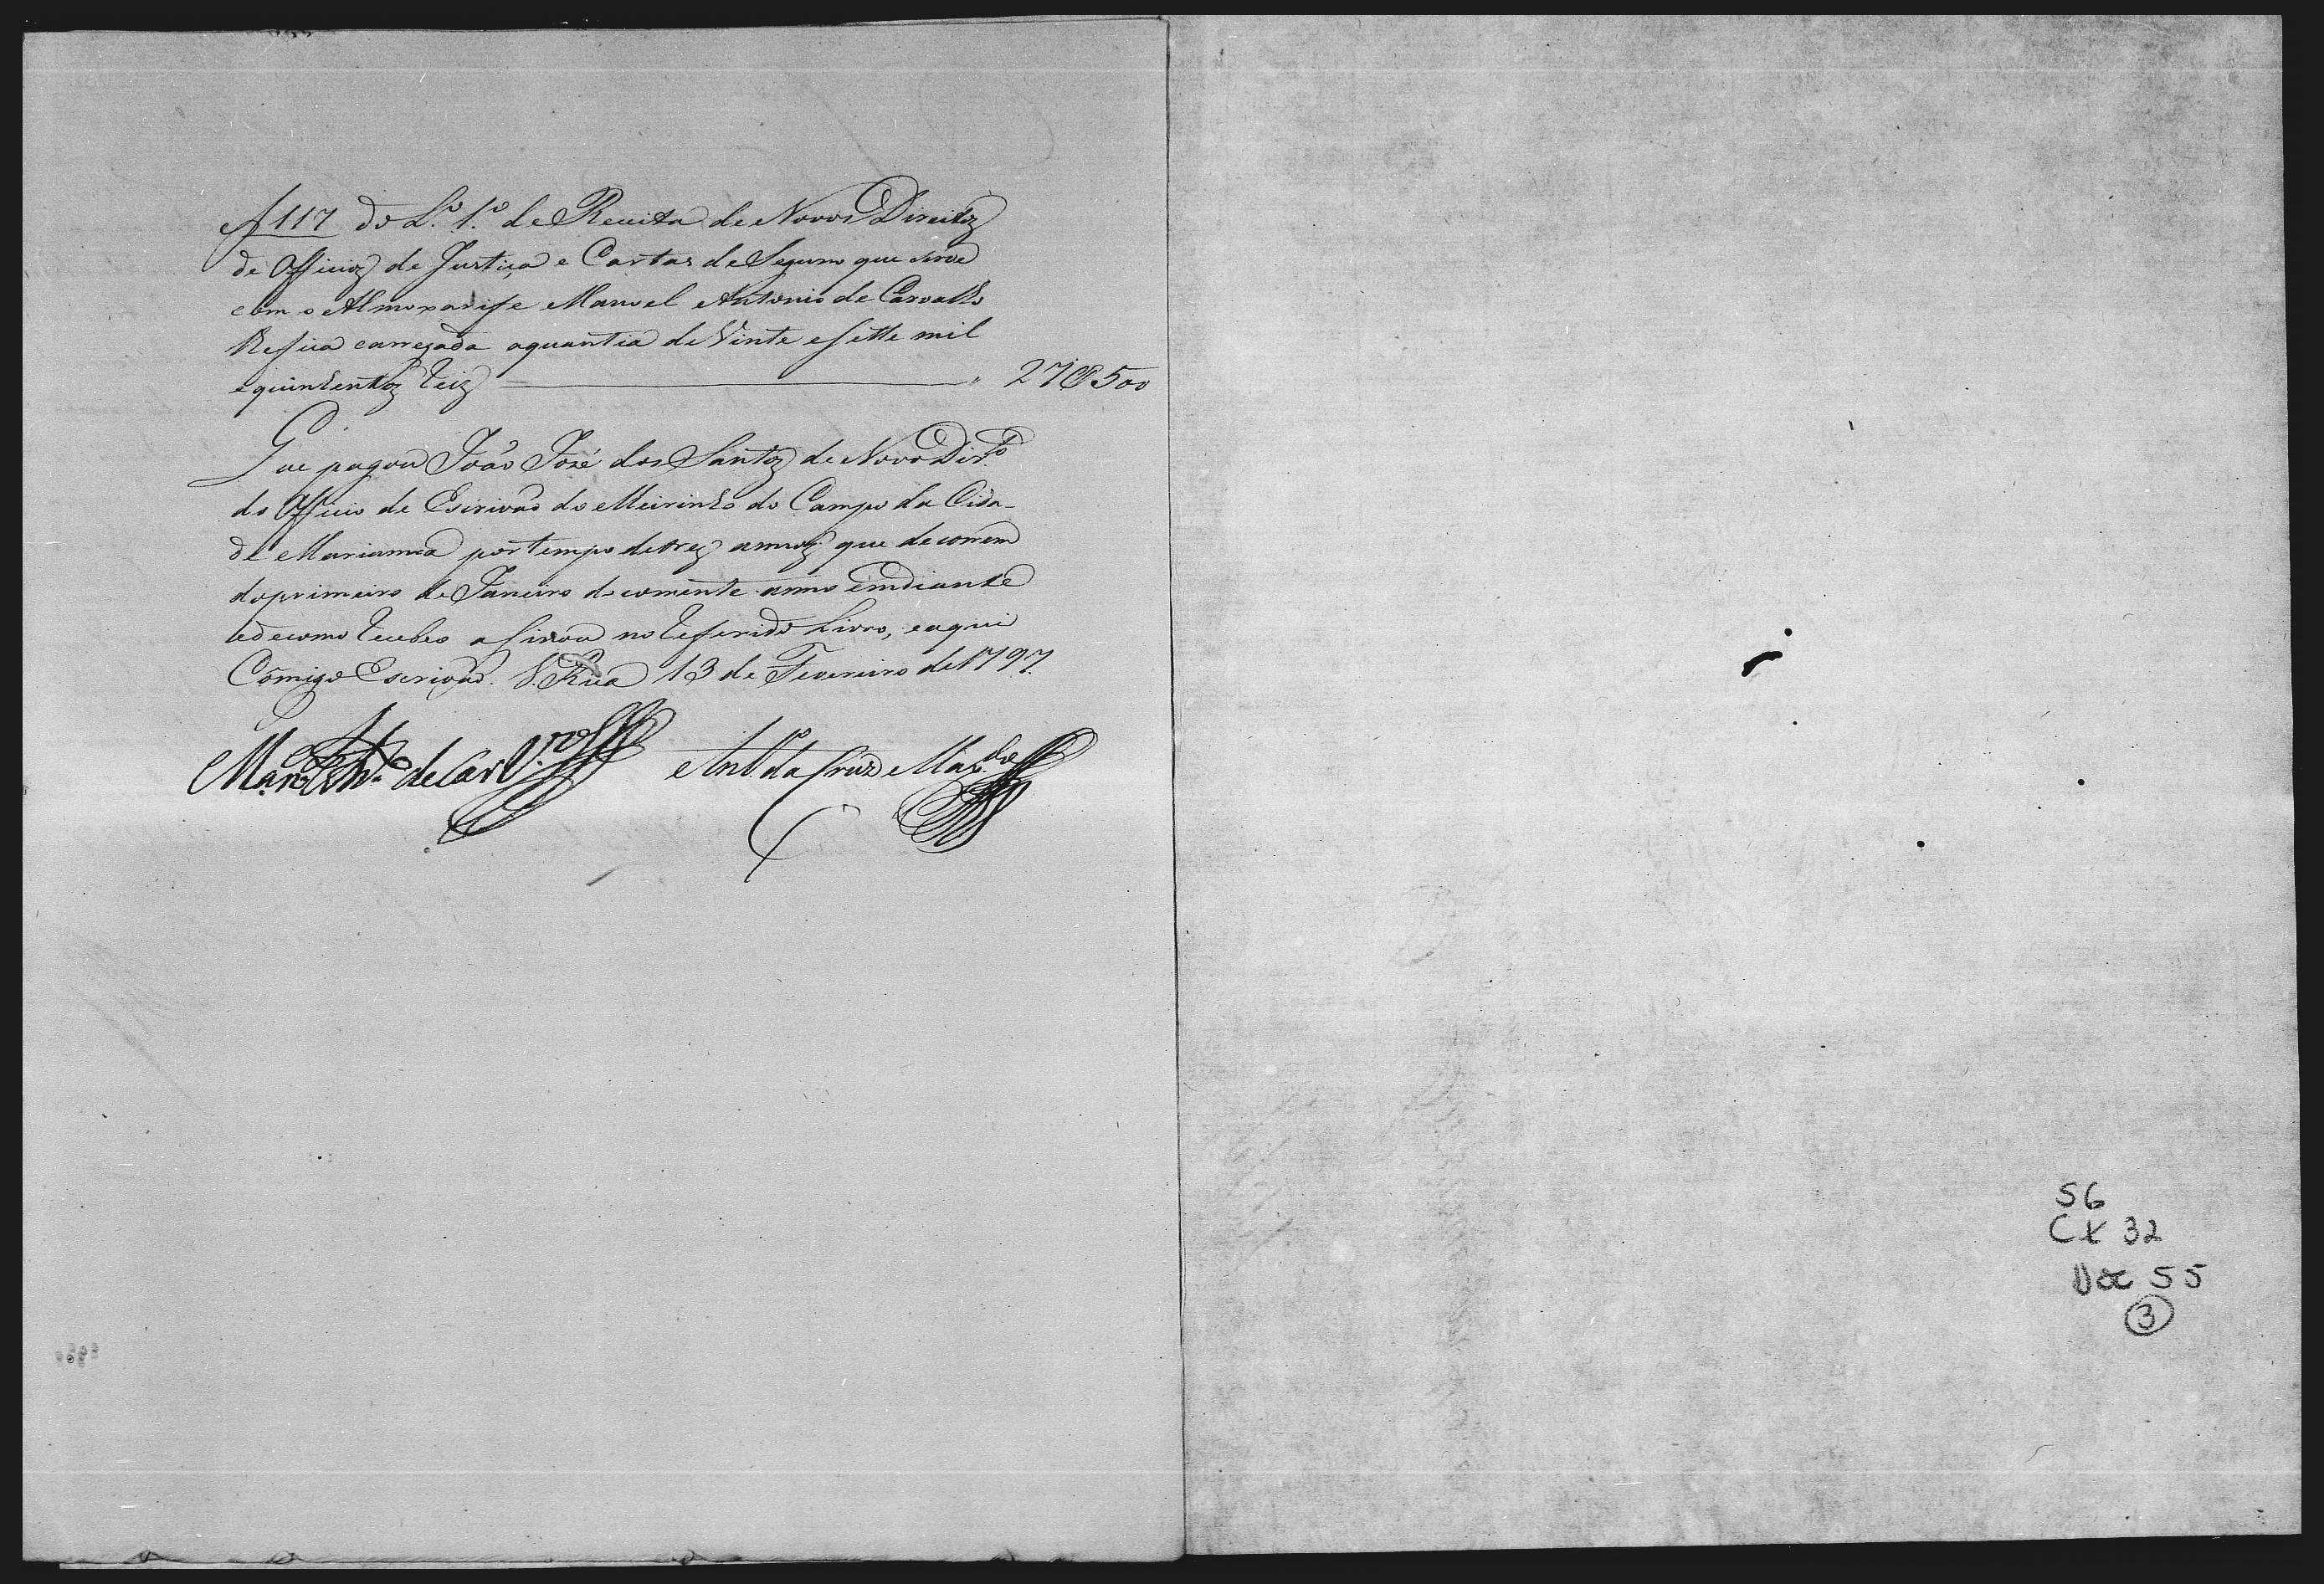 A f 117 do L.º 1.º de Receita de Novos Direitos
de Officios de Justiça e Cartas de Seguro que serve
com o Almoxarife Manoel Antonio de Carvalho
lhe fica carregada a quantia de Vinte e sette mil
e quinhentos reis 27$500
Que pagou João José dos Santos de Novo Dir.to
do Officio de Escrivaõ do Meirinho do Campo da Cida-
de Marianna por tempo de tres annos que decorrem
do primeiro de Janeiro do corrente anno em diante
e de como recebeo asignou no referido Livro, e aqui
Cõmigo Escrivaõ. V. Rica 13 de Fevereiro de 1797.
Man.el Ant.º de Carv.º Ant.º da Cruz Mach.do
56
CX 32
Doc 55
3